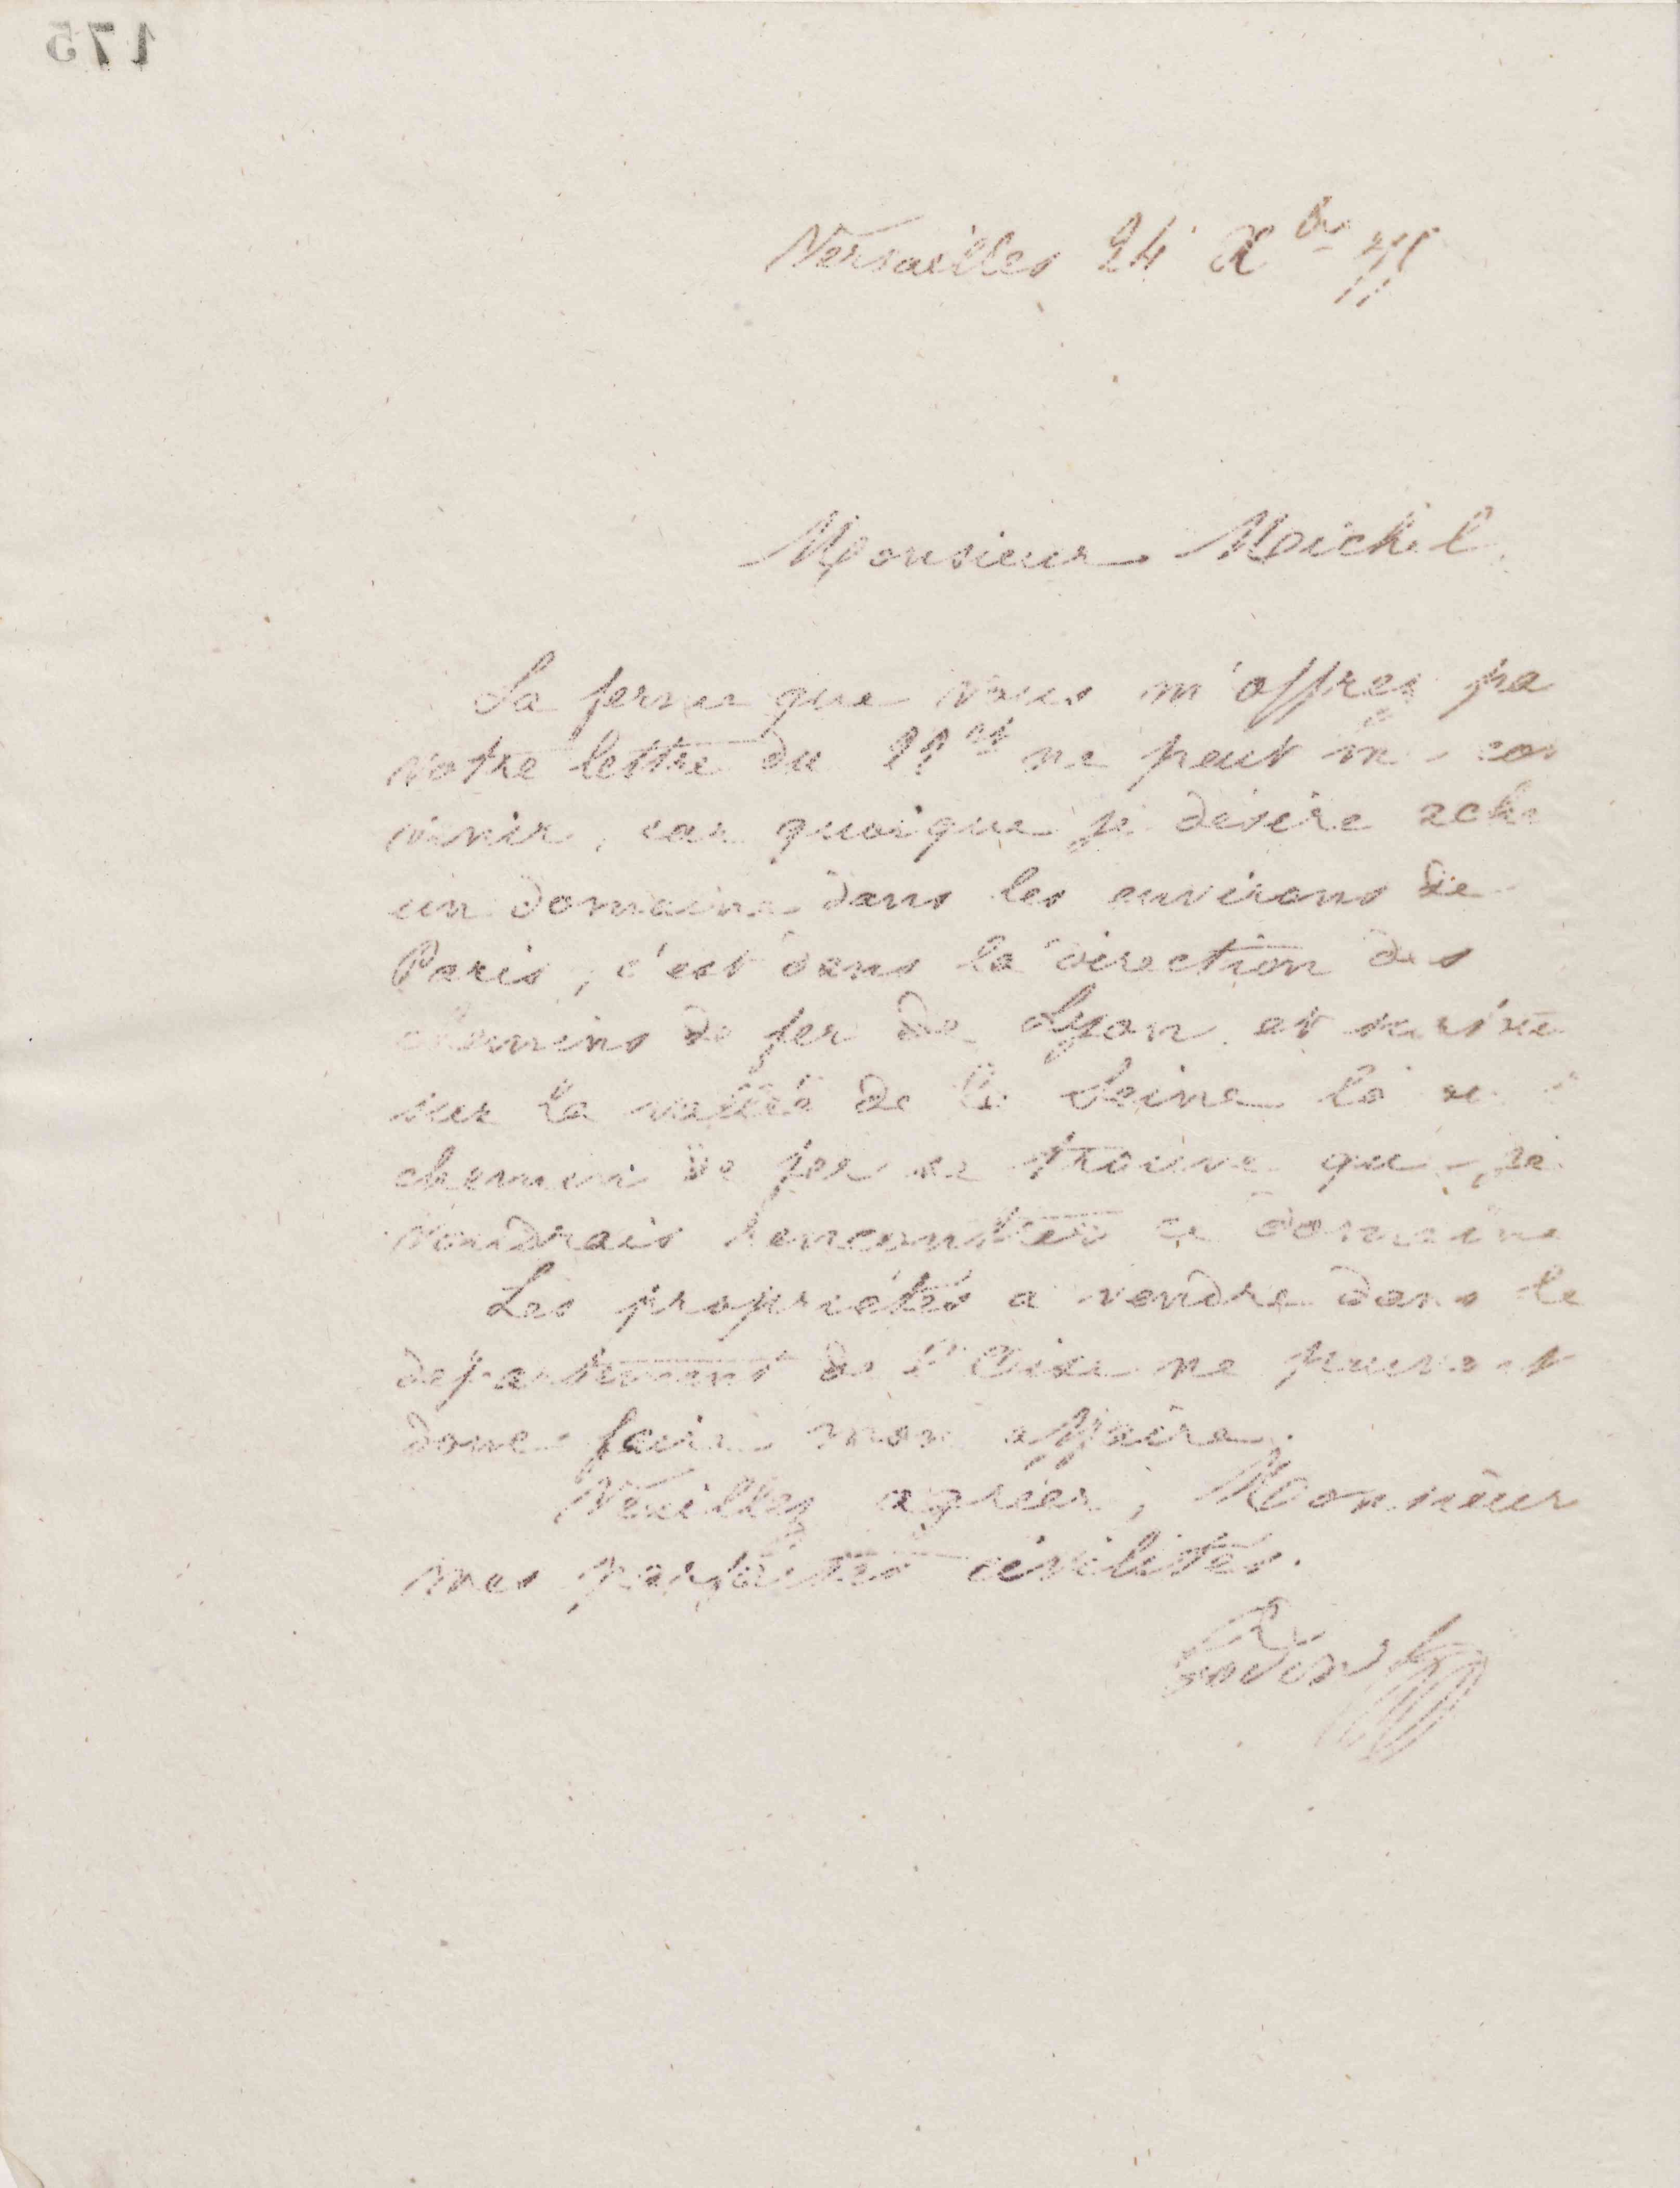 175
Versailles 24 Xbre
Monsieur Michel
La ferme que vous m'offrez pa
votre lettre du ct ne peut me con
venir, car quoique je désire ache
un domaine dans les environs de
Paris, c'est dans la direction des
chemins de fer de Lyon et surtout
sur la vallée de la Seine là
chemin de fer se trouve que je
voudrais rencontrer ce domaine
Les propriétés a vendre dans le
departement de l'Oise ne peuvent
donc faire mon affaire.
Veuillez agréer, Monsieur
mes parfaites civilités.
Godin